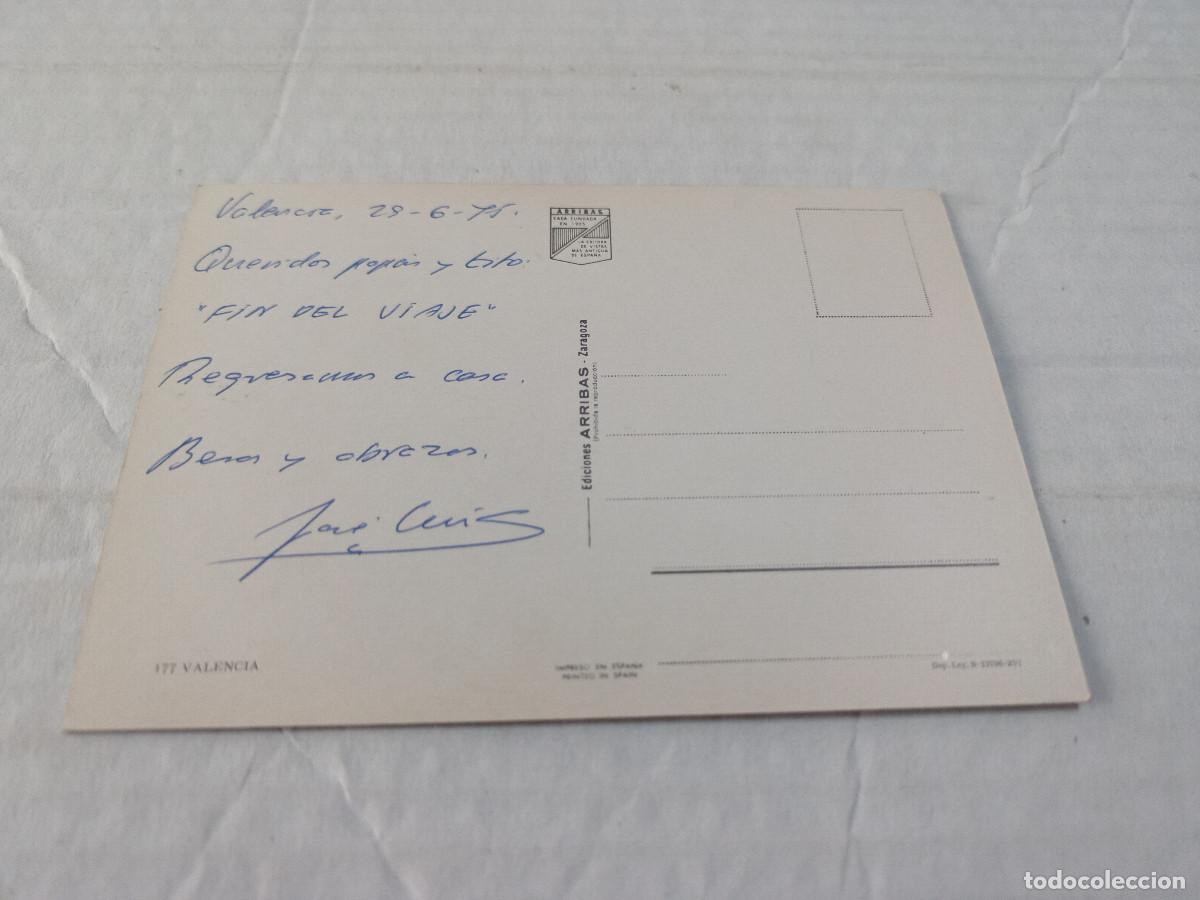 Valencia, 29-6-75.
Queridos papás y tito:
"FIN DEL VIAJE"
Regresamos a casa.
Besos y abrazos.
José Luis
177 VALENCIA
ARRIBAS
CASA FUNDADA
EN 1905
LA EDITORA
DE VISTAS
MAS ANTIGUA
DE ESPAÑA
Ediciones ARRIBAS - Zaragoza
(Prohibida la reproducción)
IMPRESO EN ESPAÑA
PRINTED IN SPAIN
Dep. Leg. B.
todocoleccion